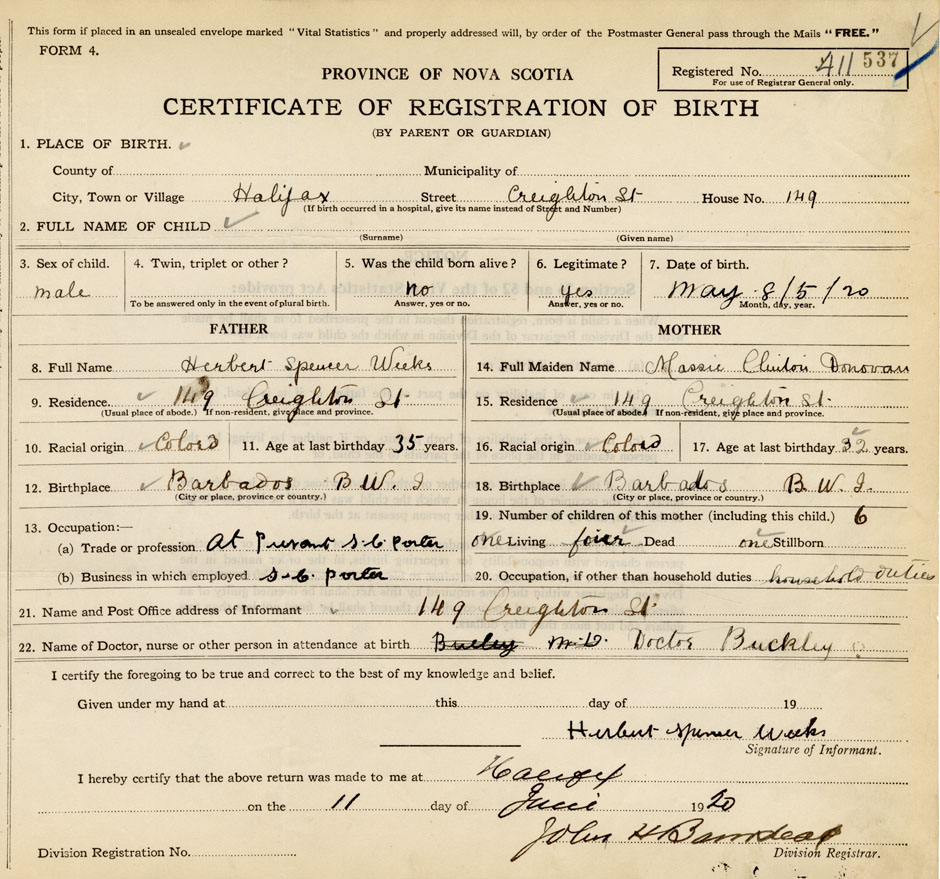 This form if placed in an unsealed envelope marked "Vital Statistics" and properly addressed will, by order of the Postmaster General pass through the Mails "FREE."
FORM 4.
Registered No. 411 537
For use of Registrar General only.
PROVINCE OF NOVA SCOTIA
CERTIFICATE OF REGISTRATION OF BIRTH
(BY PARENT OR GUARDIAN)
1. PLACE OF BIRTH.
County of Municipality of
City, Town or Village Halifax Street Creighton St House No. 149
(If birth occurred in a hospital, give its name instead of Street and Number)
2. FULL NAME OF CHILD
(Surname) (Given name)
3. Sex of child. 4. Twin, triplet or other? 5. Was the child born alive? 6. Legitimate? 7. Date of birth.
male no yes May 8/5/20
To be answered only in the event of plural birth. Answer, yes or no. Answer, yes or no. Month, day, year.
FATHER MOTHER
8. Full Name Herbert Spencer Weeks 14. Full Maiden Name Massie Clinton Donovan
9. Residence. 149 Creighton St 15. Residence 149 Creighton St.
(Usual place of abode.) If non-resident, give place and province. (Usual place of abode.) If non-resident, give place and province.
10. Racial origin Colord 11. Age at last birthday 35 years. 16. Racial origin Colord 17. Age at last birthday 32 years.
12. Birthplace Barbados B.W.I 18. Birthplace Barbados B.W.I.
(City or place, province or country.) (City or place, province or country.)
13. Occupation:— 19. Number of children of this mother (including this child.) 6
(a) Trade or profession At Presant S.C. porter one Living four Dead one Stillborn
(b) Business in which employed S.C. porter 20. Occupation, if other than household duties household duties
21. Name and Post Office address of Informant 149 Creighton St.
22. Name of Doctor, nurse or other person in attendance at birth M.D. Doctor Buckley
I certify the foregoing to be true and correct to the best of my knowledge and belief.
Given under my hand at this day of 19
Herbert Spencer Weeks
Signature of Informant.
I hereby certify that the above return was made to me at Halifax
on the 11 day of June 1920
John H
Division Registration No. Division Registrar.